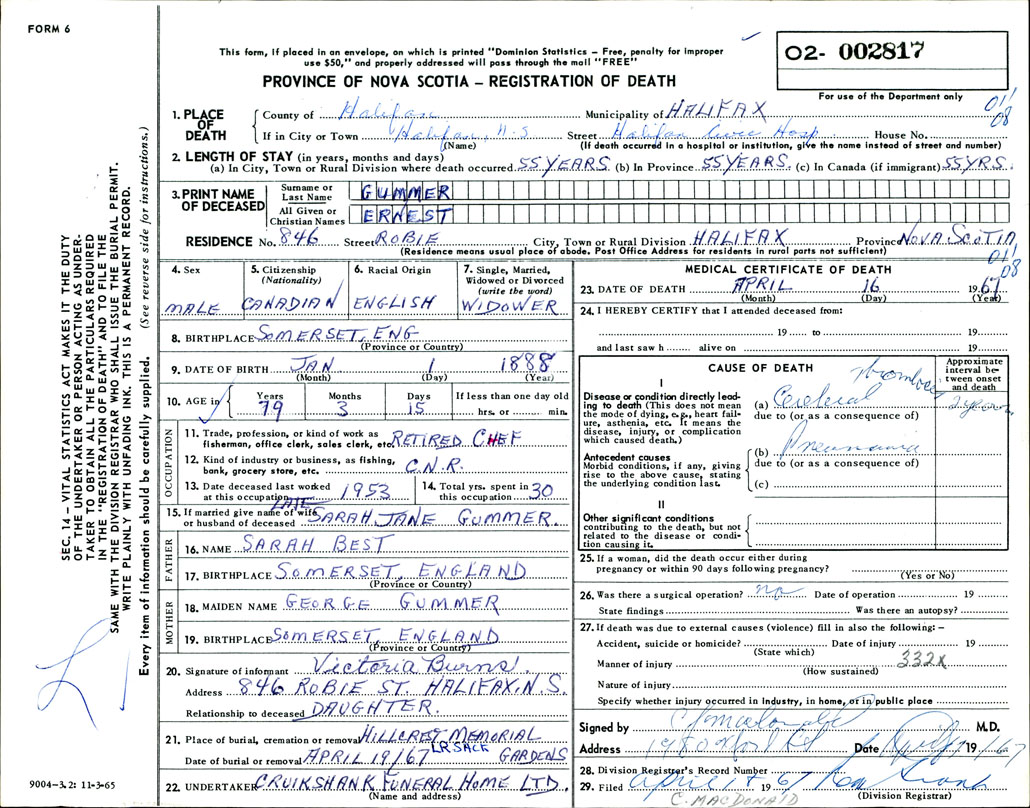 FORM 6
This form, if placed in an envelope, on which is printed "Dominion Statistics – Free, penalty for improper
use $50," and properly addressed will pass through the mail "FREE"
02- 002817
PROVINCE OF NOVA SCOTIA – REGISTRATION OF DEATH
For use of the Department only
011
08
1. PLACE OF DEATH
County of Halifax Municipality of HALIFAX
If in City or Town Halifax, N.S. Street Halifax Civic Hosp House No.
(Name) (If death occurred in a hospital or institution, give the name instead of street and number)
2. LENGTH OF STAY (in years, months and days)
(a) In City, Town or Rural Division where death occurred 55 YEARS. (b) In Province 55 YEARS. (c) In Canada (if immigrant) 55 YRS.
3. PRINT NAME OF DECEASED
Surname or Last Name GUMMER
All Given or Christian Names ERNEST
RESIDENCE No. 846 Street ROBIE City, Town or Rural Division HALIFAX Province NOVA SCOTIA
(Residence means usual place of abode. Post Office Address for residents in rural parts not sufficient)
011
08
4. Sex
MALE
5. Citizenship
(Nationality)
CANADIAN
6. Racial Origin
ENGLISH
7. Single, Married,
Widowed or Divorced
(write the word)
WIDOWER
8. BIRTHPLACE SOMERSET, ENG
(Province or Country)
9. DATE OF BIRTH JAN 1 1888
(Month) (Day) (Year)
10. AGE in
Years Months Days If less than one day old
79 3 15 hrs. or min.
OCCUPATION
11. Trade, profession, or kind of work as
fisherman, office clerk, sales clerk, etc. RETIRED CHEF
12. Kind of industry or business, as fishing,
bank, grocery store, etc. C.N.R.
13. Date deceased last worked
at this occupation 1953
14. Total yrs. spent in
this occupation 30
15. If married give name of wife
or husband of deceased LATE SARAH JANE GUMMER.
FATHER
16. NAME SARAH BEST
17. BIRTHPLACE SOMERSET, ENGLAND
(Province or Country)
MOTHER
18. MAIDEN NAME GEORGE GUMMER
19. BIRTHPLACE SOMERSET, ENGLAND
(Province or Country)
20. Signature of informant Victoria Burns.
Address 846 ROBIE ST. HALIFAX. N.S.
Relationship to deceased DAUGHTER.
21. Place of burial, cremation or removal HILLCREST MEMORIAL
LR SACK GARDENS
Date of burial or removal APRIL 19/67
22. UNDERTAKER CRUIKSHANK FUNERAL HOME LTD.
(Name and address)
MEDICAL CERTIFICATE OF DEATH
23. DATE OF DEATH APRIL 16 1967
(Month) (Day) (Year)
24. I HEREBY CERTIFY that I attended deceased from:
19 to 19
and last saw h alive on 19
CAUSE OF DEATH
Approximate
interval be-
tween onset
and death
I
Disease or condition directly lead-
ing to death (This does not mean
the mode of dying, e.g., heart fail-
ure, asthenia, etc. It means the
disease, injury, or complication
which caused death.)
(a) Cerebral thrombosis 2 years
due to (or as a consequence of)
Antecedent causes
Morbid conditions, if any, giving
rise to the above cause, stating
the underlying condition last.
(b) Pneumonia
due to (or as a consequence of)
(c)
II
Other significant conditions
contributing to the death, but not
related to the disease or condi-
tion causing it.
25. If a woman, did the death occur either during
pregnancy or within 90 days following pregnancy?
(Yes or No)
26. Was there a surgical operation? no Date of operation 19
State findings Was there an autopsy?
27. If death was due to external causes (violence) fill in also the following: –
Accident, suicide or homicide? Date of injury 19
(State which)
Manner of injury 332X
(How sustained)
Nature of injury
Specify whether injury occurred in Industry, in home, or in public place
Signed by M.D.
Address Date 19/67
28. Division Registrar's Record Number
29. Filed April 1967
(Division Registrar)
C. MACDONALD
SEC. 14 – VITAL STATISTICS ACT MAKES IT THE DUTY
OF THE UNDERTAKER OR PERSON ACTING AS UNDER-
TAKER TO OBTAIN ALL THE PARTICULARS REQUIRED
IN THE "REGISTRATION OF DEATH" AND TO FILE THE
SAME WITH THE DIVISION REGISTRAR WHO SHALL ISSUE THE BURIAL PERMIT.
WRITE PLAINLY WITH UNFADING INK. THIS IS A PERMANENT RECORD.
Every item of information should be carefully supplied. (See reverse side for instructions.)
9004-3.2: 11-3-65